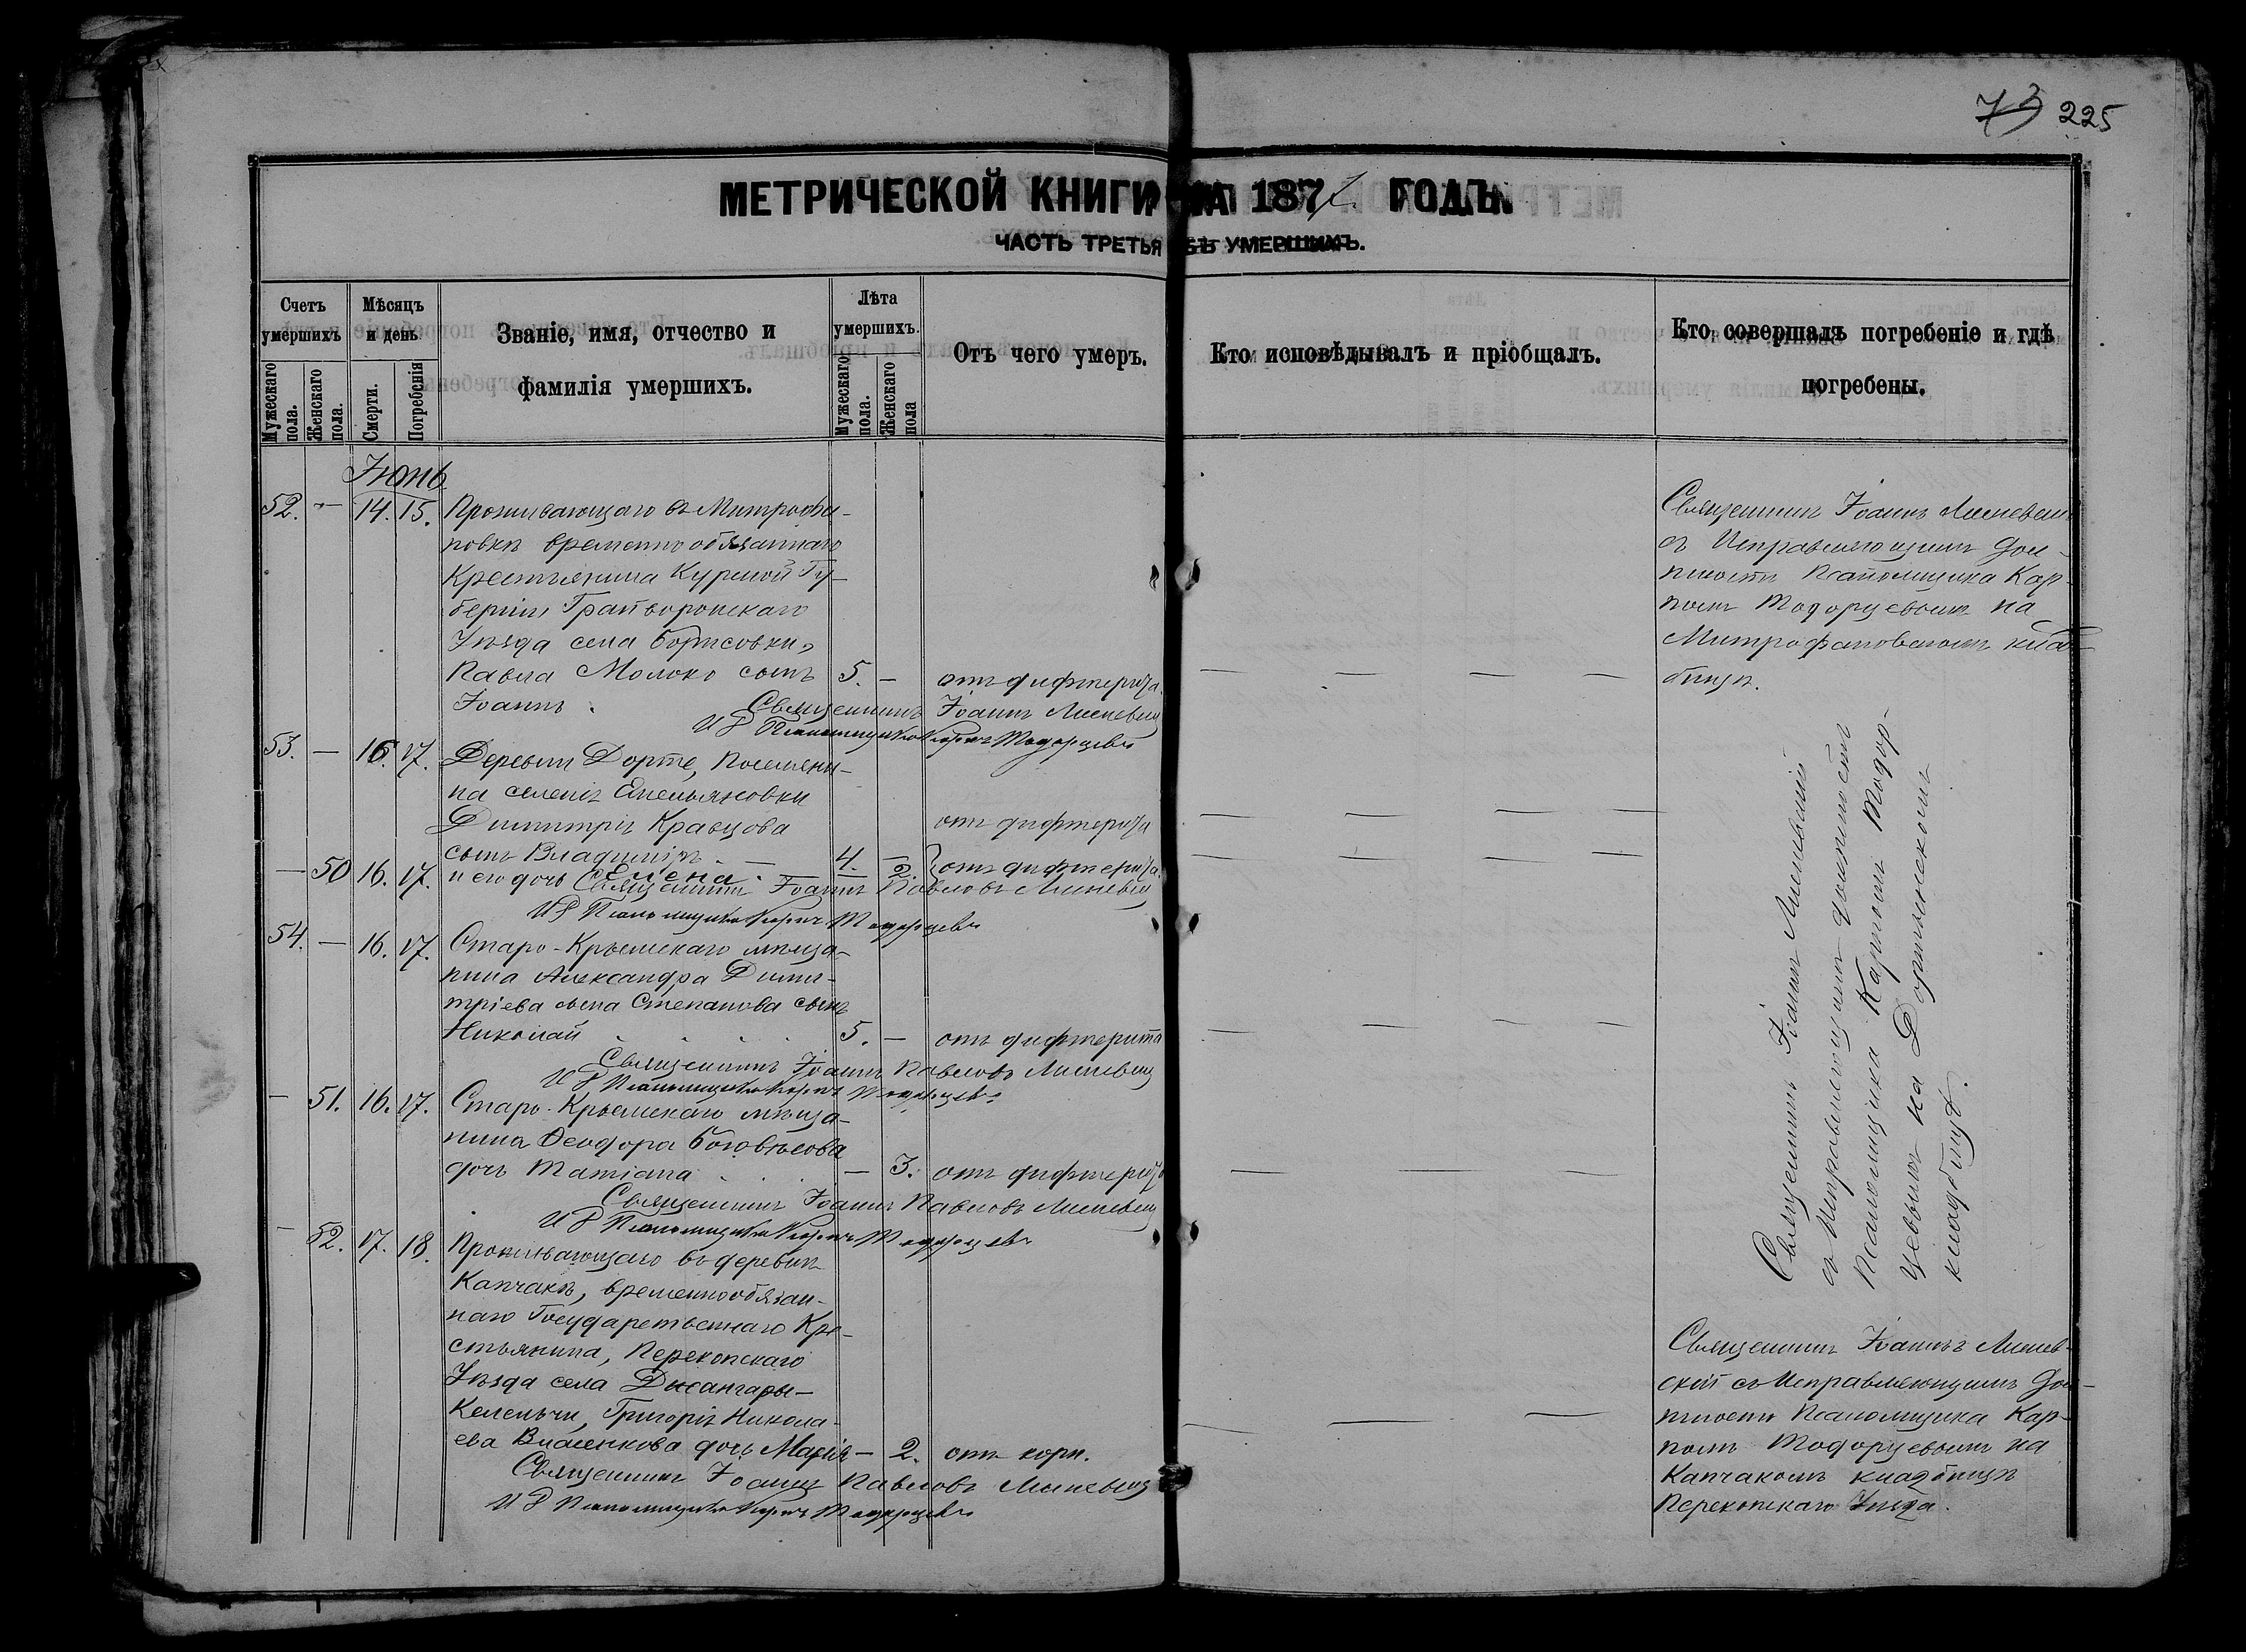 73 225
МЕТРИЧЕСКОЙ КНИГИ НА 187 ГОДЪ.
ЧАСТЬ ТРЕТЬЯ ОБЪ УМЕРШИХЪ.
Счетъ умершихъ
Мужескаго пола.
Женскаго пола.
Мѣсяцъ и день
Смерти.
Погребенія
Званіе, имя, отчество и фамилія умершихъ.
Лѣта умершихъ.
Мужескаго пола.
Женскаго пола
Отъ чего умеръ.
Кто исповѣдывалъ и пріобщалъ.
Кто совершалъ погребеніе и гдѣ погребены.
Іюнь
52. — 14. 15. Проживающаго въ Митрофа-
новкѣ временно обязаннаго
Крестьянина Курской Гу-
берніи Грайворонскаго
Уѣзда села Борисовки,
Павла Молоко сынъ 5. — отъ дифтерита.
Іоаннъ.
Священникъ Іоаннъ
И Д Псаломщика Карпъ Тодорцевъ
Священникъ Іоаннъ
съ Исправляющимъ дол-
жность Псаломщика Кар-
помъ Тодорцевымъ на
Митрофановскомъ клад-
бищѣ.
53. — 16. 17. Деревни Дорте, Поселяни-
на селенія Емельяновки
Димитрія Кравцова отъ дифтерита
сынъ Владиміръ. — 4. —
— 50 16. 17. и его дочь Елена. — 2. отъ дифтерита.
Священникъ Іоаннъ Павловъ
И Д Псаломщика Карпъ Тодорцевъ
54. — 16. 17. Старо-Крымскаго мѣща-
нина Александра Дими-
тріева сына Степанова сынъ
Николай 5. — отъ дифтерита
Священникъ Іоаннъ Павловъ
И Д Псаломщика Карпъ Тодорцевъ
— 51. 16. 17. Старо-Крымскаго мѣща-
нина Феодора
дочь Татіана — 3. отъ дифтерита
Священникъ Іоаннъ Павловъ
И Д Псаломщика Карпъ Тодорцевъ
Священникъ Іоаннъ
съ Исправляющимъ должность
Псаломщика Карпомъ Тодор-
цевымъ на
кладбищѣ.
— 52. 17. 18. Проживающаго въ деревнѣ
Капчакъ, временнообязан-
наго Государственнаго Кре-
стьянина, Перекопскаго
Уѣзда села Джангары-
Келечи, Григорія Никола-
ева дочь Марія — 2. отъ кори.
Священникъ Іоаннъ Павловъ
И Д Псаломщика Карпъ Тодорцевъ
Священникъ Іоаннъ
съ Исправляющимъ дол-
жность Псаломщика Кар-
помъ Тодорцевымъ на
Капчакомъ кладбищѣ
Перекопскаго Уѣзда.